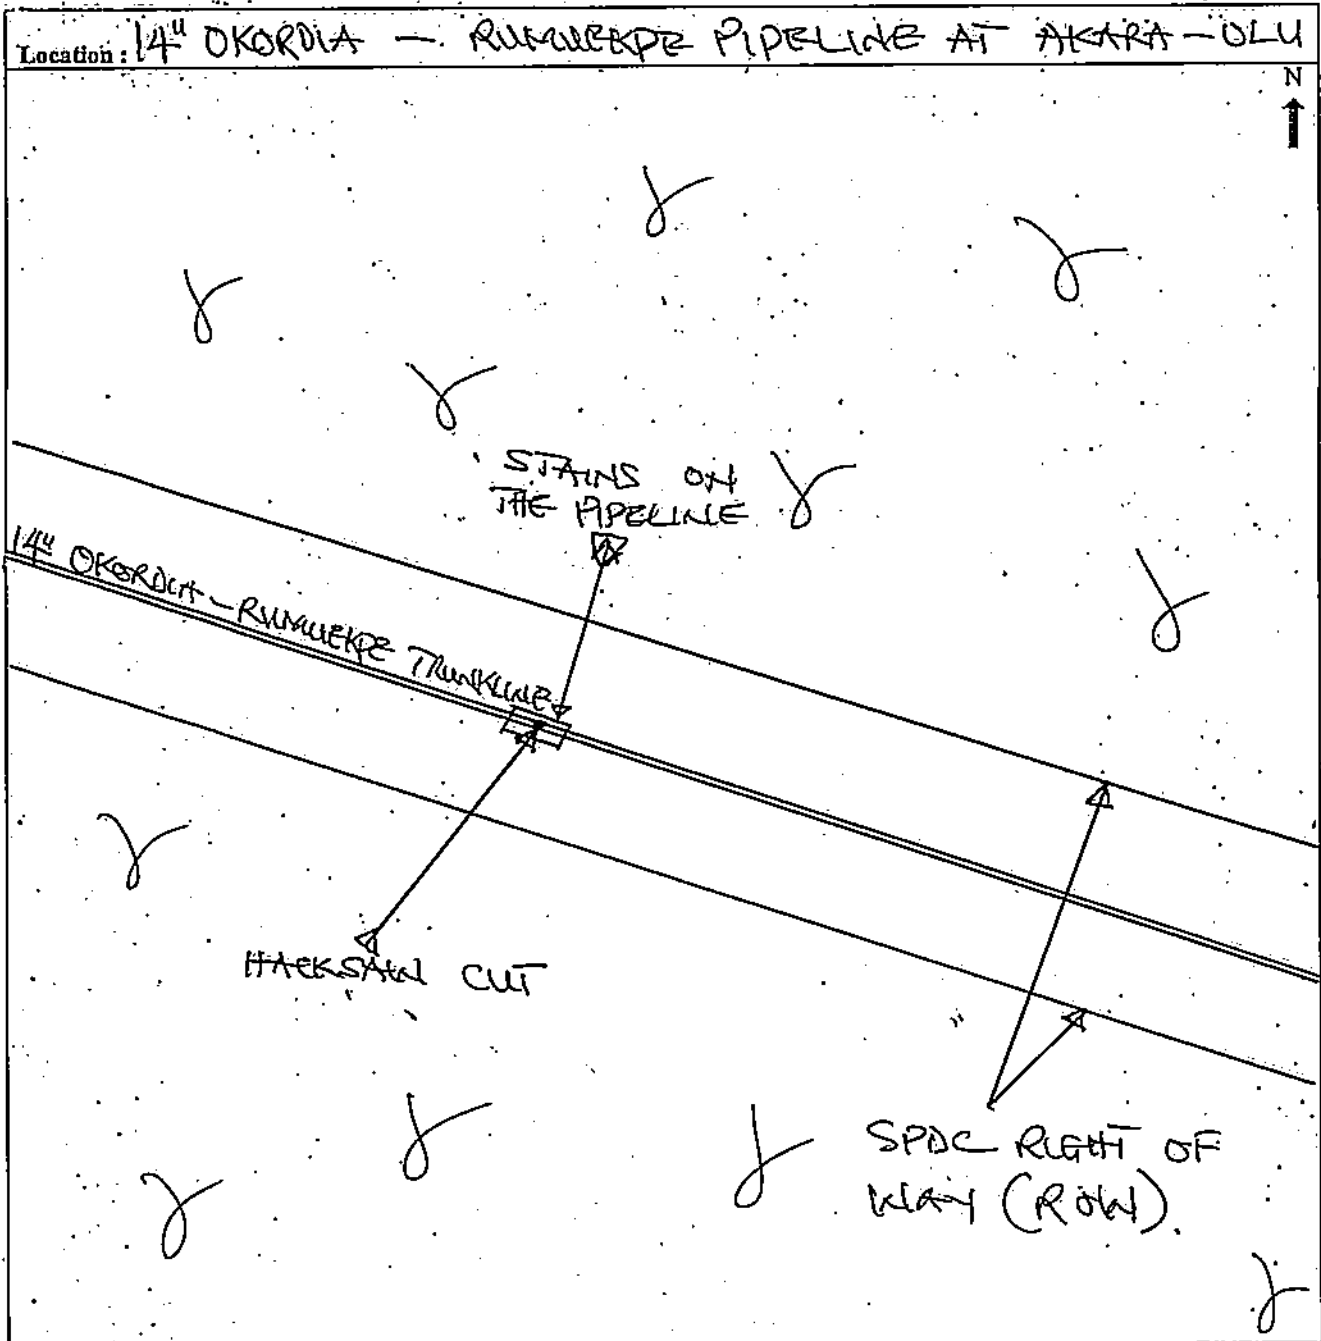 Location: 14" OKORDIA - RUMUEKPE PIPELINE AT AKARA-OLU
N
STAINS ON
THE PIPELINE
14" OKORDIA - RUMUEKPE TRUNKLINE
HACKSAW CUT
SPDC RIGHT OF
WAY (ROW).